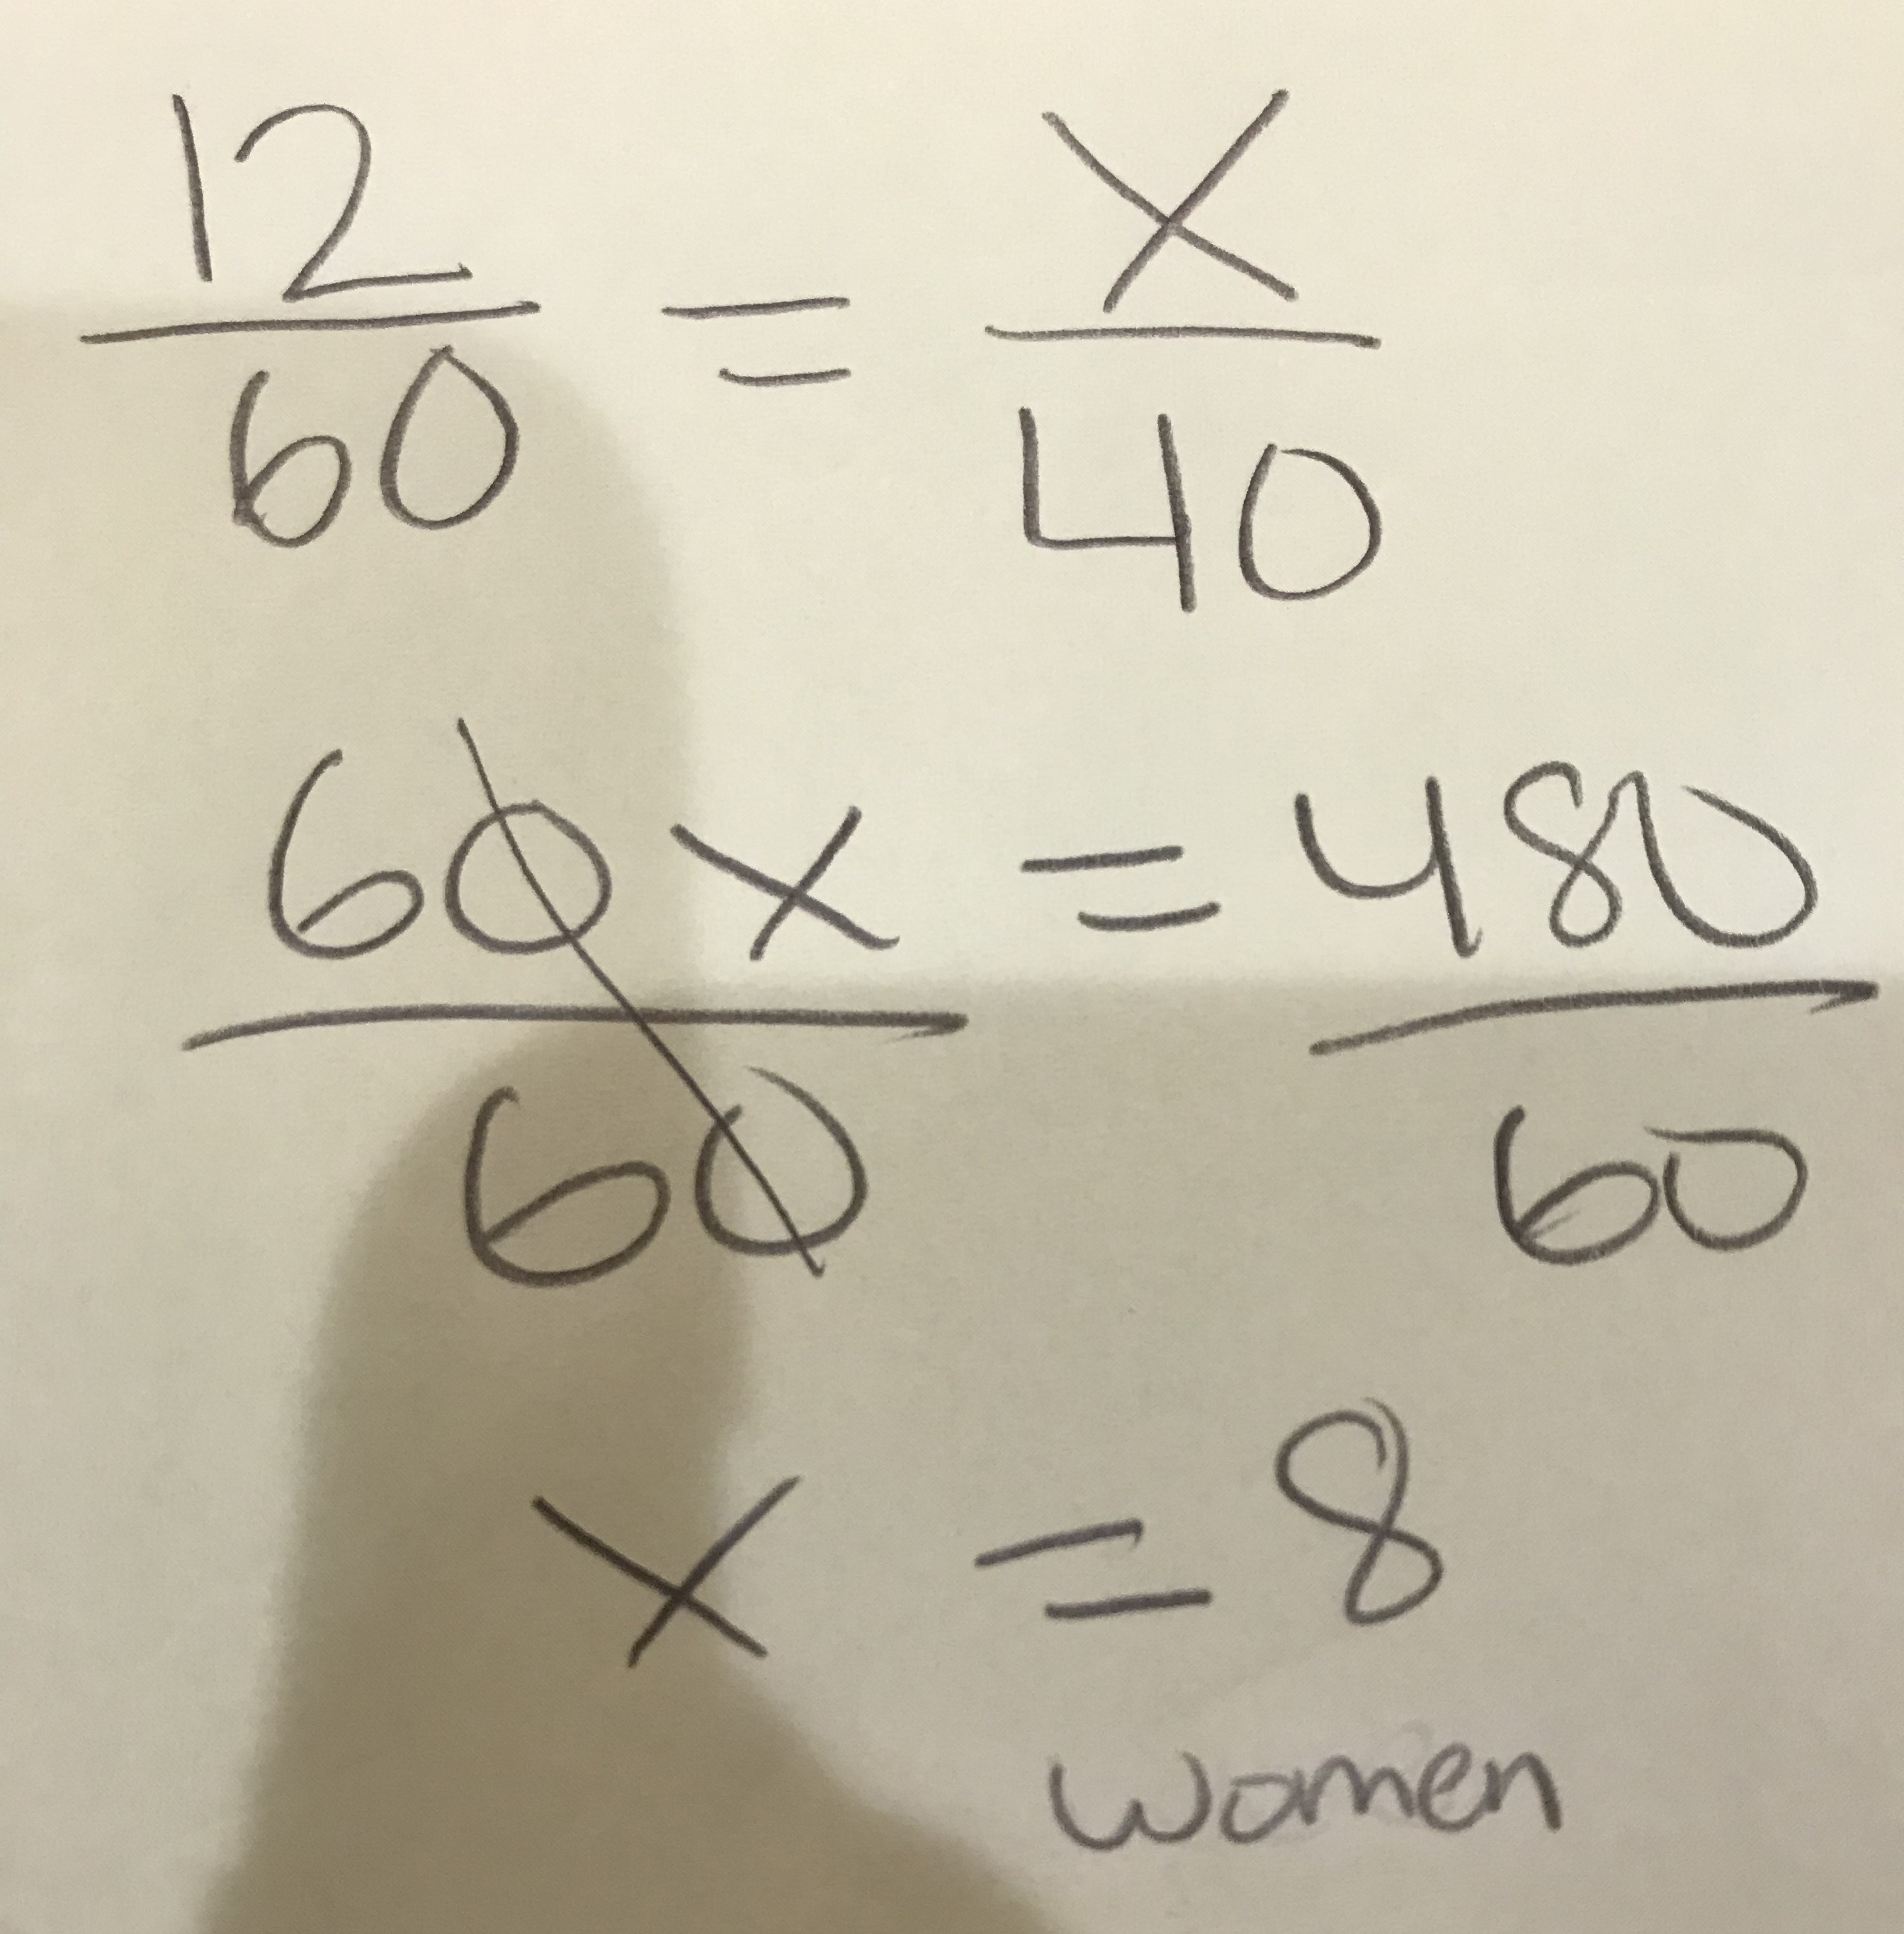 12/60 = x/40
60x/60 = 480/60
x = 8
women